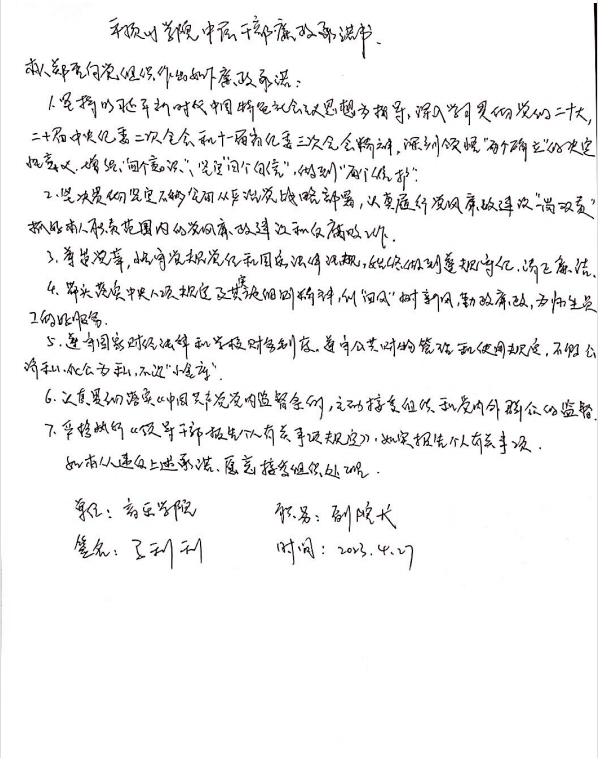 平顶山学院中层干部廉政承诺书
本人郑重向党组织作出如下廉政承诺：
1.坚持以习近平新时代中国特色社会主义思想为指导，深入学习贯彻党的二十大，
二十届中央纪委二次全会和十一届省纪委三次全会精神，深刻领悟"两个确立"的决定
性意义，增强"四个意识"、坚定"四个自信"，做到"两个维护"。
2.坚决贯彻坚定不移全面从严治党战略部署，认真履行党风廉政建设"一岗双责"
抓好本人职责范围内的党风廉政建设和反腐败工作。
3.尊崇党章，恪守党规党纪和国家法律法规，始终做到遵规守纪，清正廉洁。
4.带头落实中央八项规定及其实施细则精神，纠"四风"树新风，勤政廉政，为师生员
工做好服务。
5.遵守国家财经法律和学校财务制度。遵守公共财物管理和使用规定，不假公
济私、化公为私，不设"小金库"。
6.认真贯彻落实《中国共产党党内监督条例》，主动接受组织和党内外群众的监督。
7.严格执行《领导干部报告个人有关事项规定》，如实报告个人有关事项。
如本人违反上述承诺，愿意接受组织处理。
单位：音乐学院 职务：副院长
签名：王利利 时间：2023.4.27